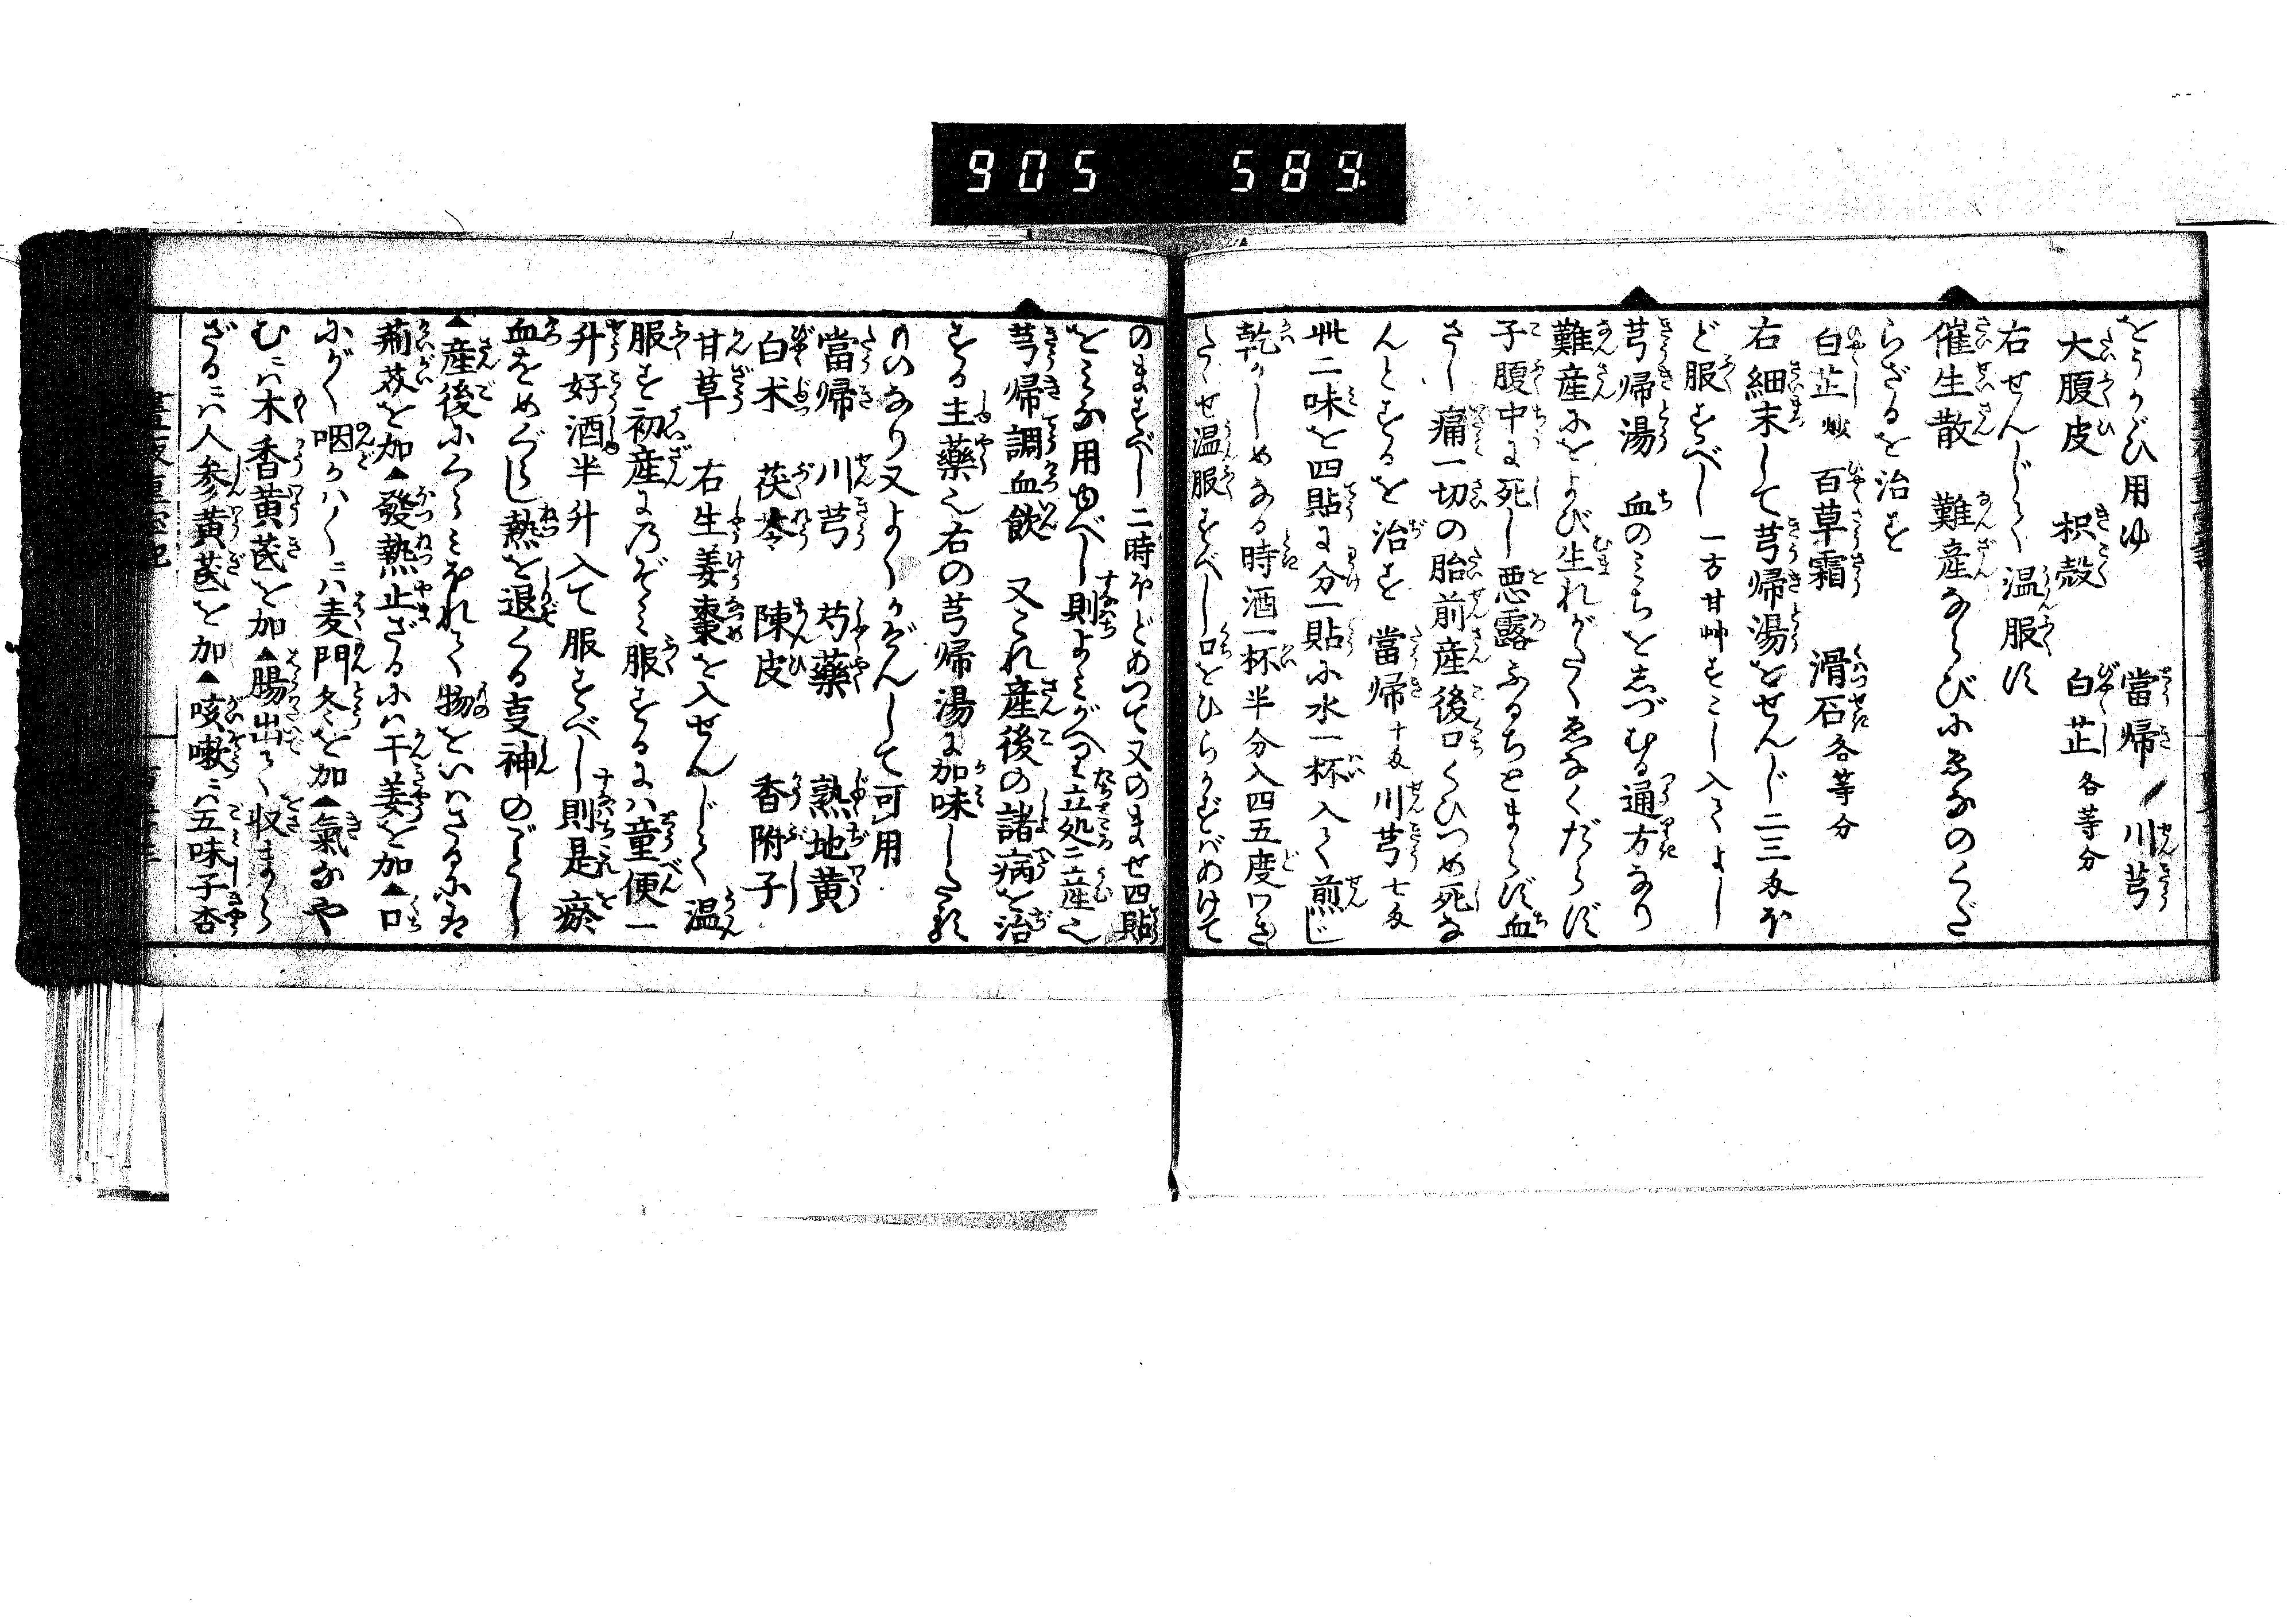 905 589.
をうかゞひ用ゆ 當帰 川芎
大腹皮 枳殻 白芷各等分
右せんじて温服す
催生散 難産ならびにゑなのくだ
らざるを治す
白芷炒 百草霜 滑石各等分
右細末して芎帰湯をせんじ二三匁ほ
ど服すべし一方甘艸すこし入てよし
芎帰湯 血のみちをしづむる通方なり
難産にをよび生れがたくゑなくだらず
子腹中に死し悪露ふるちとまらず血
さし痛一切の胎前産後口くひつめ死な
んとするを治す 當帰十匁川芎七匁
此二味を四貼に分一貼に水一杯入て煎じ
乾かしめなる時酒一杯半分入四五度わき
たゝせ温服すべし口をひらかずばあけて
のますべし二時ほどあつて又のませ四貼
をみな用ゆべし則よみがへり立処ニ産也
芎帰調血飲 又これ産後の諸病を治
する主藥也右の芎帰湯に加味したる
ものなり又よくかげんして可用
當帰 川芎 芍藥 熟地黄
白术 茯苓 陳皮 香附子
甘草 右生姜棗を入せんじて温
服す初産に乃ぞみ服するには童便一
升好酒半升入て服すべし則是瘀
血をめぐらし熱を退くる支神のごとし
▲産後に心みだれて物をいはざるには
荊芥を加▲發熱止ざるには干姜を加▲口
にがく咽かはくニハ麦門冬を加▲氣なや
むニハ木香黄芪を加▲腸出て收まら
ざるニハ人参黄芪を加▲咳嗽ニハ五味子杏